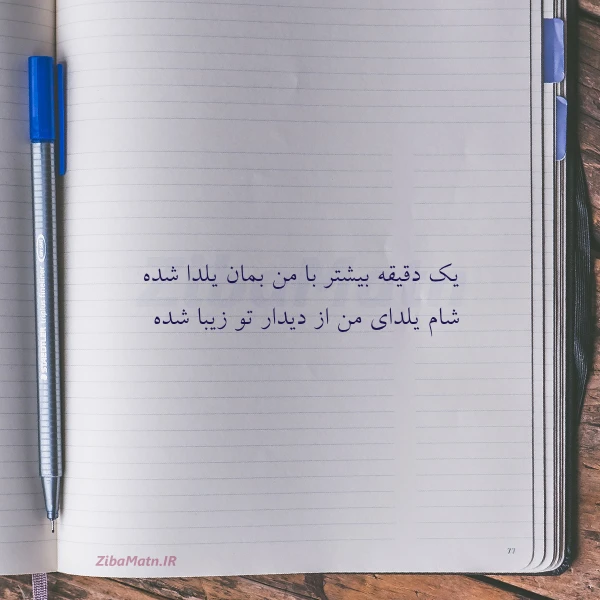 یک دقیقه بیشتر با من بمان یلدا شده
شام یلدای من از دیدار تو زیبا شده
ZibaMatn.IR
77